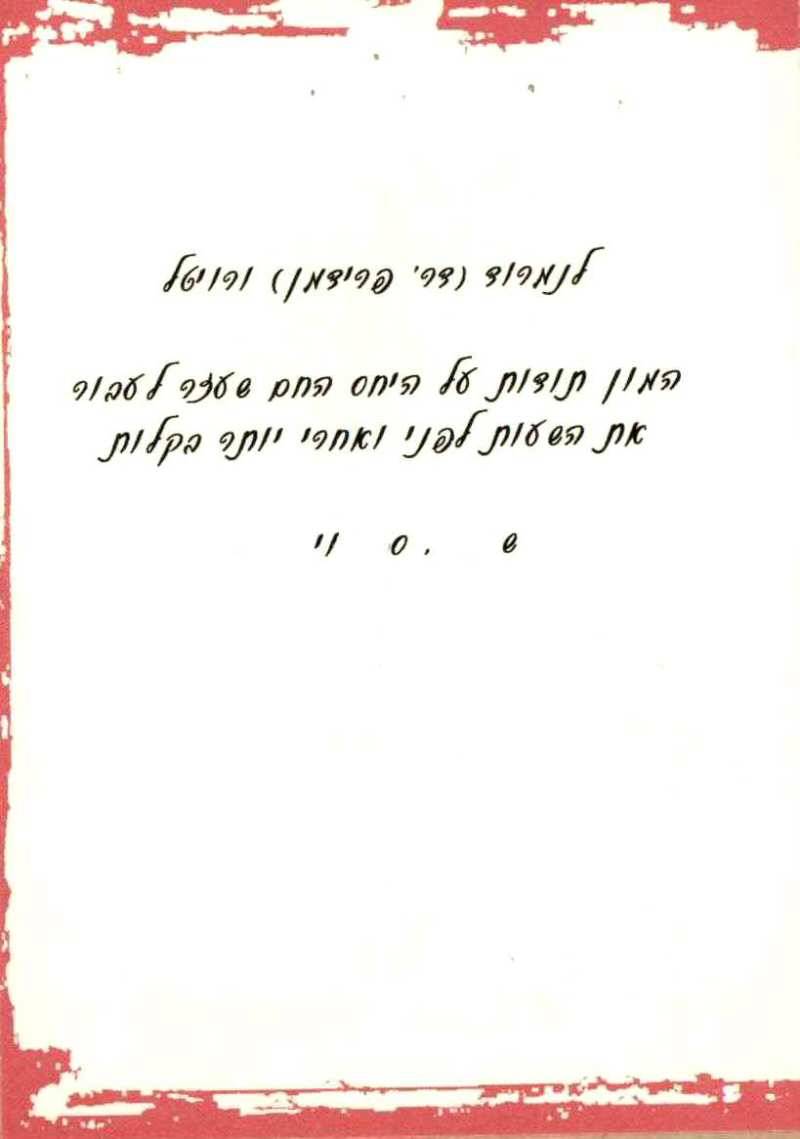 לנמרוד (דר' פרידמן) ורויטל
המון תודות על היחס החם שעזר לעבור
את השעות לפני ואחרי יותר בקלות
ש . ס וי